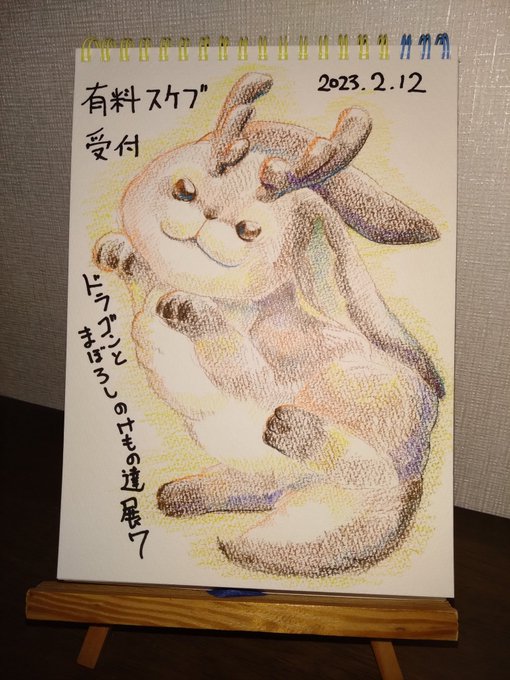 有料スケブ
受付
2023.2.12
ドラゴンと
まぼろしのけもの達展7